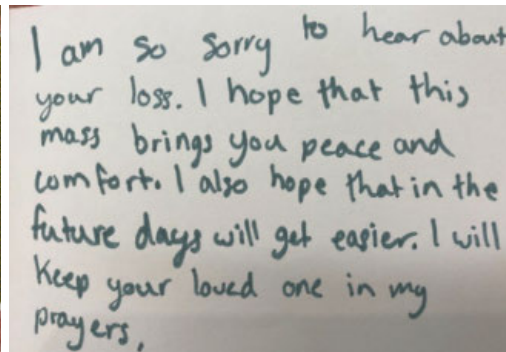 I am so sorry to hear about
your loss. I hope that this
mass brings you peace and
comfort. I also hope that in the
future days will get easier. I will
Keep your loved one in my
prayers.